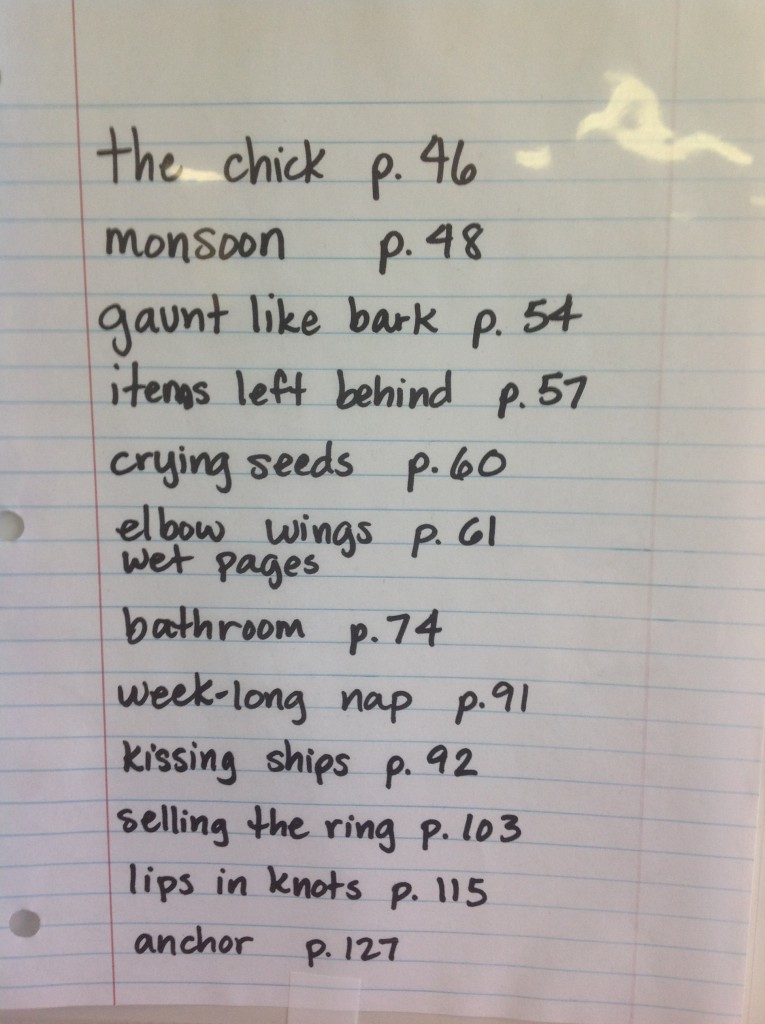 the chick p. 46
monsoon p. 48
gaunt like bark p. 54
items left behind p. 57
crying seeds p. 60
elbow wings p. 61
wet pages
bathroom p. 74
week-long nap p. 91
kissing ships p. 92
selling the ring p. 103
lips in knots p. 115
anchor p. 127